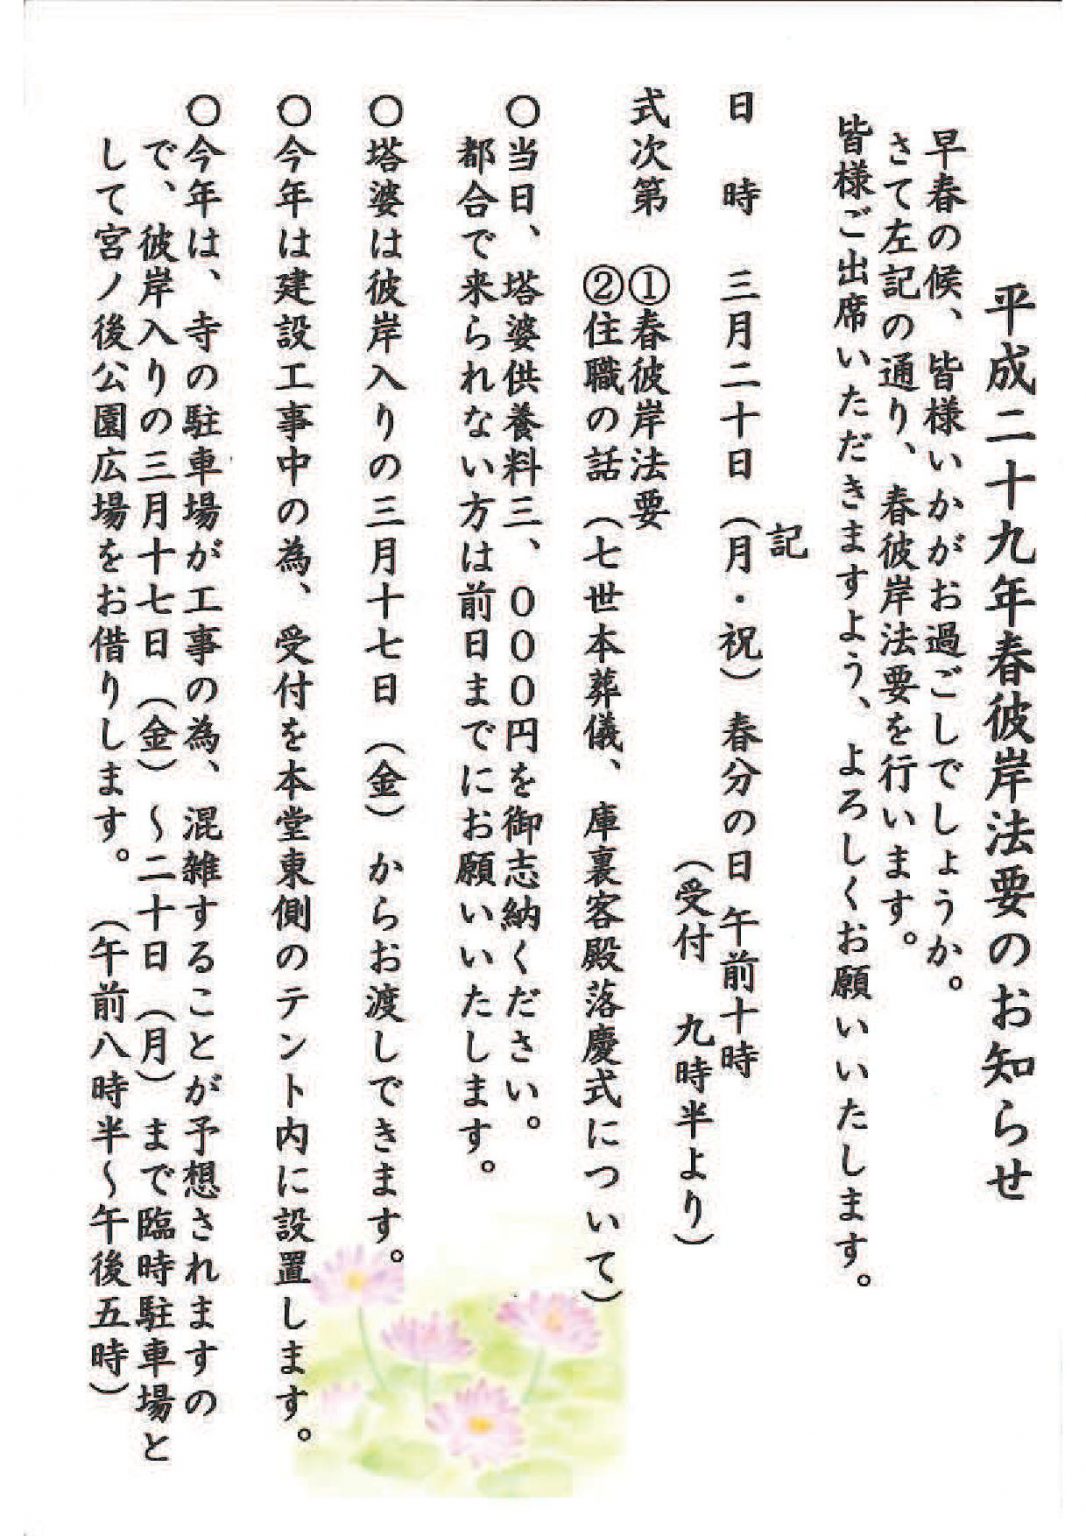 平成二十九年春彼岸法要のお知らせ
早春の候、皆様いかがお過ごしでしょうか。
さて左記の通り、春彼岸法要を行います。
皆様ご出席いただきますよう、よろしくお願いいたします。
記
日 時 三月二十日（月・祝）春分の日 午前十時
（受付 九時半より）
式次第 ①春彼岸法要
②住職の話（七世本葬儀、庫裏客殿落慶式について）
〇当日、塔婆供養料三、０００円を御志納ください。
都合で来られない方は前日までにお願いいたします。
〇塔婆は彼岸入りの三月十七日（金）からお渡しできます。
〇今年は建設工事中の為、受付を本堂東側のテント内に設置します。
〇今年は、寺の駐車場が工事の為、混雑することが予想されますの
で、彼岸入りの三月十七日（金）～二十日（月）まで臨時駐車場と
して宮ノ後公園広場をお借りします。（午前八時半～午後五時）